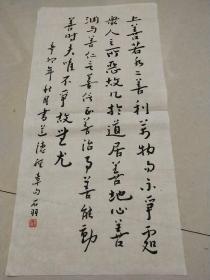 上善若水水善利万物而不争处
众人之所恶故几於道居善地心善
渊与善仁言善信正善治事善能动
善时夫唯不争故无尤
辛卯年秋月书道德经章句石羽